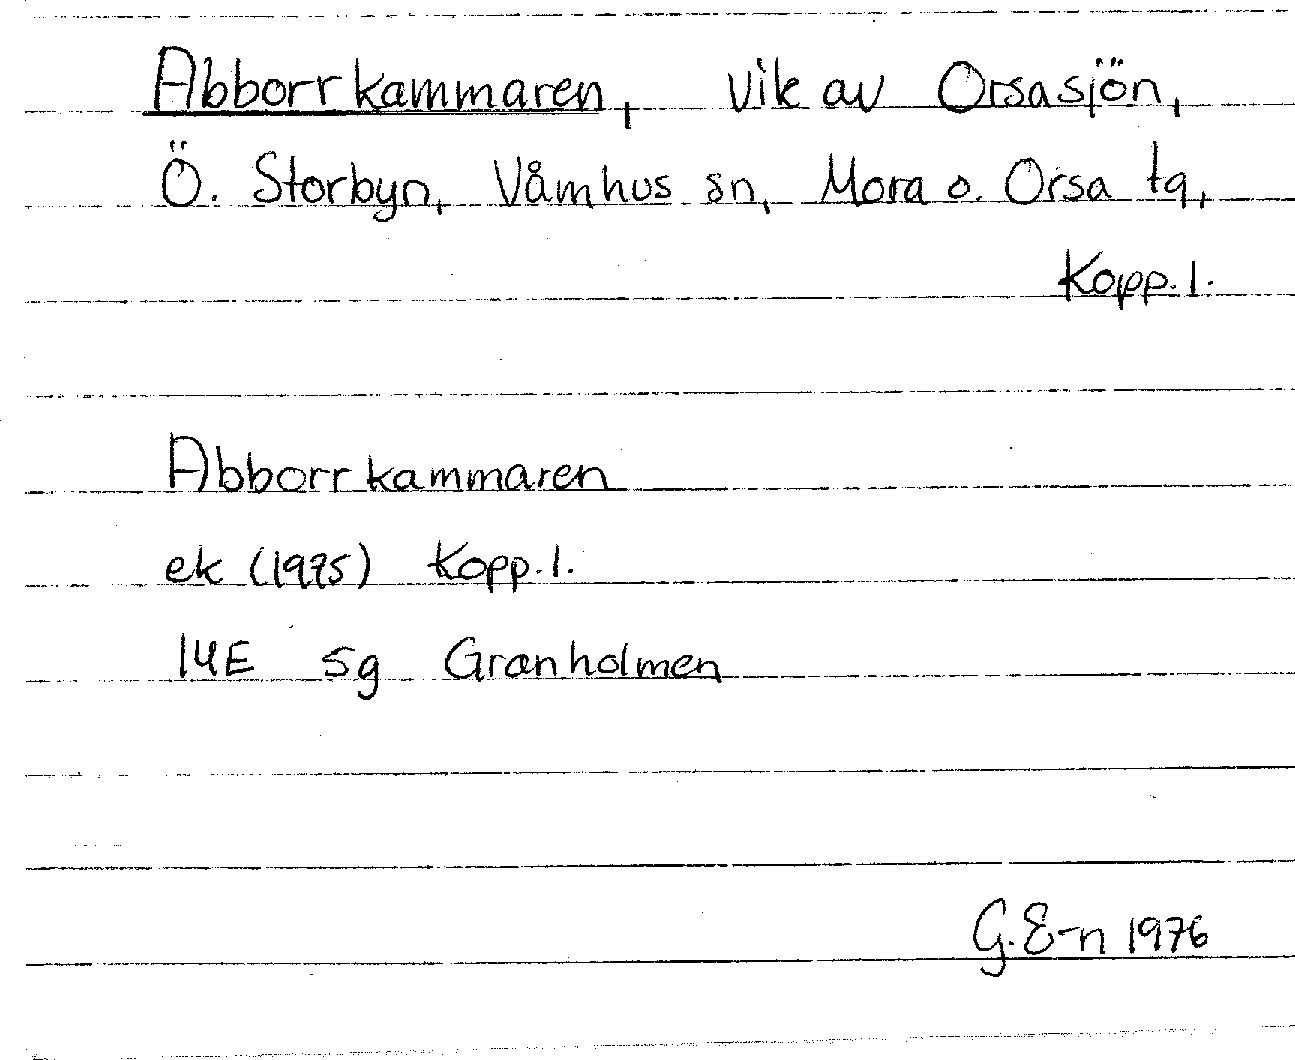 Abborrkammaren, vik av Orsasjön,
Ö. Storbyn, Våmhus sn, Mora o. Orsa tg,
Kopp. l.
Abborrkammaren
ek (1975) Kopp. l.
14E 5g Granholmen
G. E-n 1976